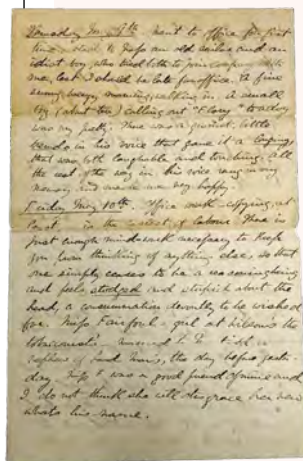 Thursday My. 9th. Went to office for first
time, had to pass an old sailor and an
idiot boy, who tried both to join company with
me, lest I should be late for office. A fine
sunny, breezy, morning, walking in. A small
boy (about ten) calling out "Flory" to a dog
was very pretty. There was a quaint, little
in his voice that gave it a
that was both laughable and touching. All
the rest of the way in, his voice rang in my
memory and made me very happy.
Friday My. 10th. Office work - copying, at
least - is the easiest of labours. There is
just enough mind-work necessary to keep
you from thinking of anything else, so that
one simply ceases to be a reasoning being
and feels stodged and stupid about the
head, a consummation devoutly to be wished
for. Miss Fairfoul - girl at the
tobacconist's - married to
nephew of the day before yester-
day. Miss F. was a good friend of mine and
I do not think she will disgrace her new
whats-his-name.